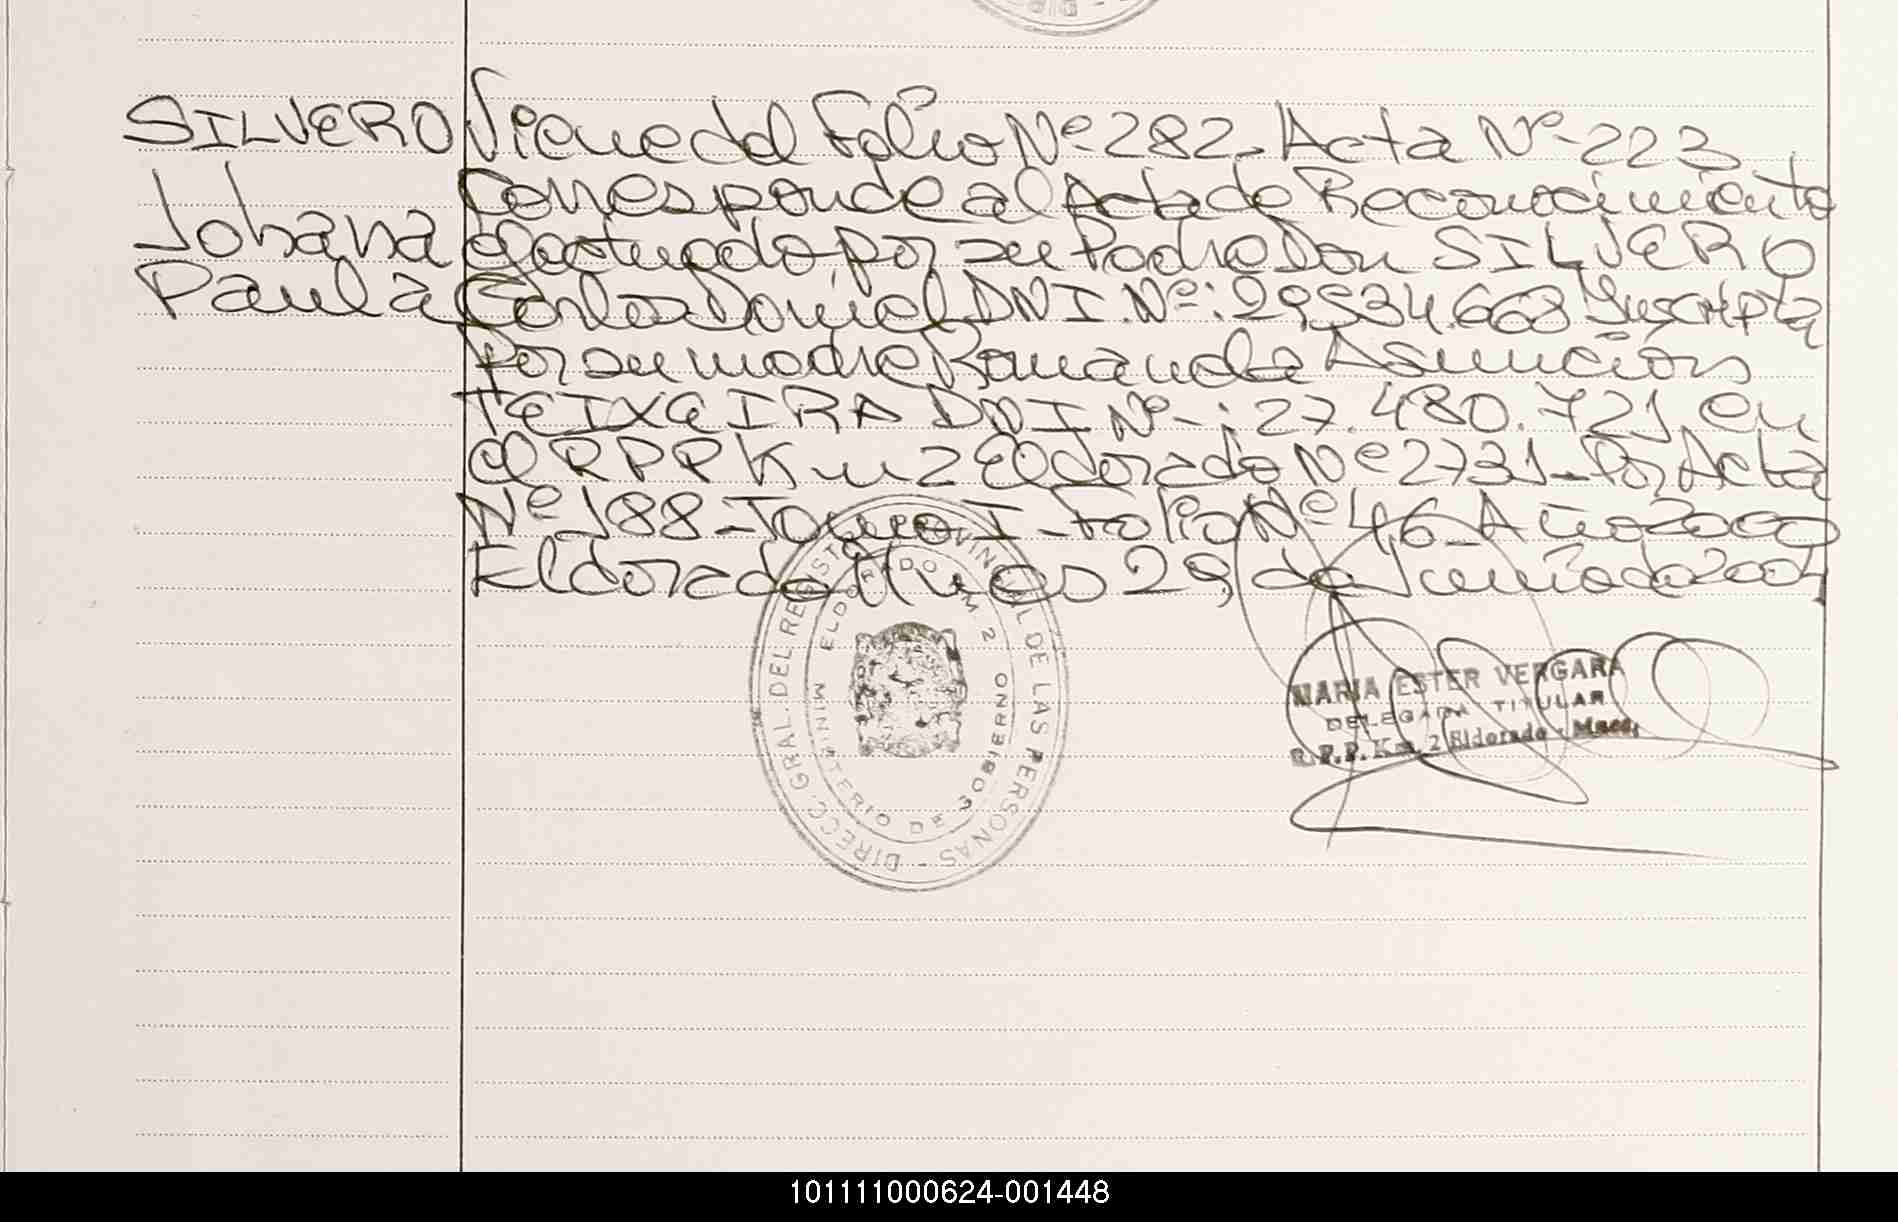 SILVERO
Johana
Paula
Viene del Folio Nº 282. Acta Nº-223
Corresponde al Acta de Reconocimiento
efectuado por su Padre Don SILVERO
Carlos Daniel DNI. Nº: 29.534.668 Inscripta
por su madre Romanda Asunción
TEIXEIRA DNI Nº-: 27.480.721 en
el RPP Km 2 Eldorado Nº 2731-Por Acta
Nº 188-Tomo I-Folio Nº 46-Año 2000
Eldorado Mnes 29, de Junio de 2004
DIRECC. GRAL. DEL REGISTRO PROVINCIAL DE LAS PERSONAS -
ELDORADO KM. 2
MINISTERIO DE GOBIERNO
MARIA ESTER VERGARA
DELEGADA TITULAR
R.P.P. Km. 2 Eldorado - Mnes.
101111000624-001448